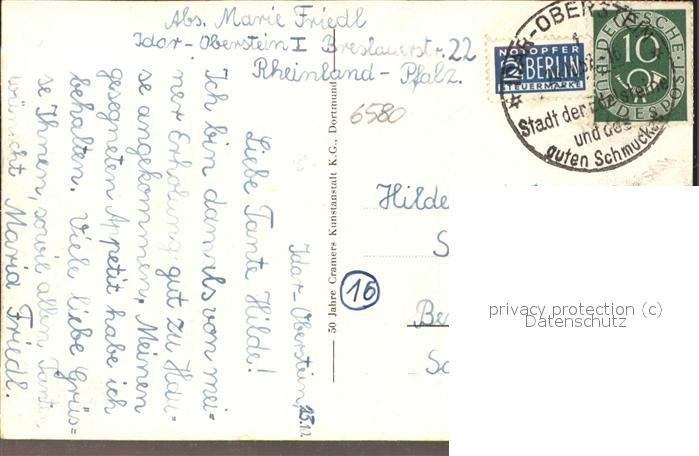 Abs. Marie Friedl
Idar-Oberstein I Breslauerstr. 22
Rheinland-Pfalz.
NOTOPFER
2 BERLIN
STEUERMARKE
DEUTSCHE
10
BUNDESPOST
IDAR-OBERSTEIN
Stadt der Edelsteine
und des
guten Schmucks
6580
50 Jahre Cramers Kunstanstalt K.G., Dortmund
Idar-Oberstein, 23.12
Liebe Tante Hilde!
Ich bin damals von mei-
ner Erholung gut zu Hau-
se angekommen. Meinen
gesegneten Appetit habe ich
behalten. Viele liebe Grüs=
se Ihnen, sowie allen Tanten
wünscht Maria Friedl.
Hilde
S
16
Be
Sc
privacy protection (c)
Datenschutz